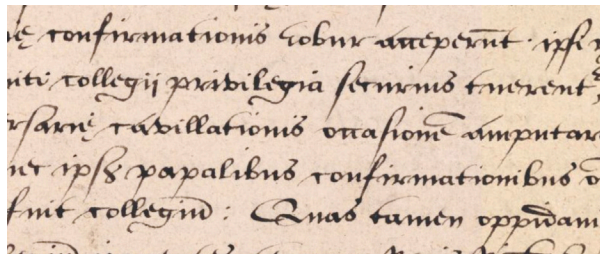 confirmationis robur acceperūt · ipsi
collegij privilegia securius tuerent
cavillationis occasionē amputar
nec ipsis papalibus confirmationibus
fuit collegiū : Quas tamen oppidani